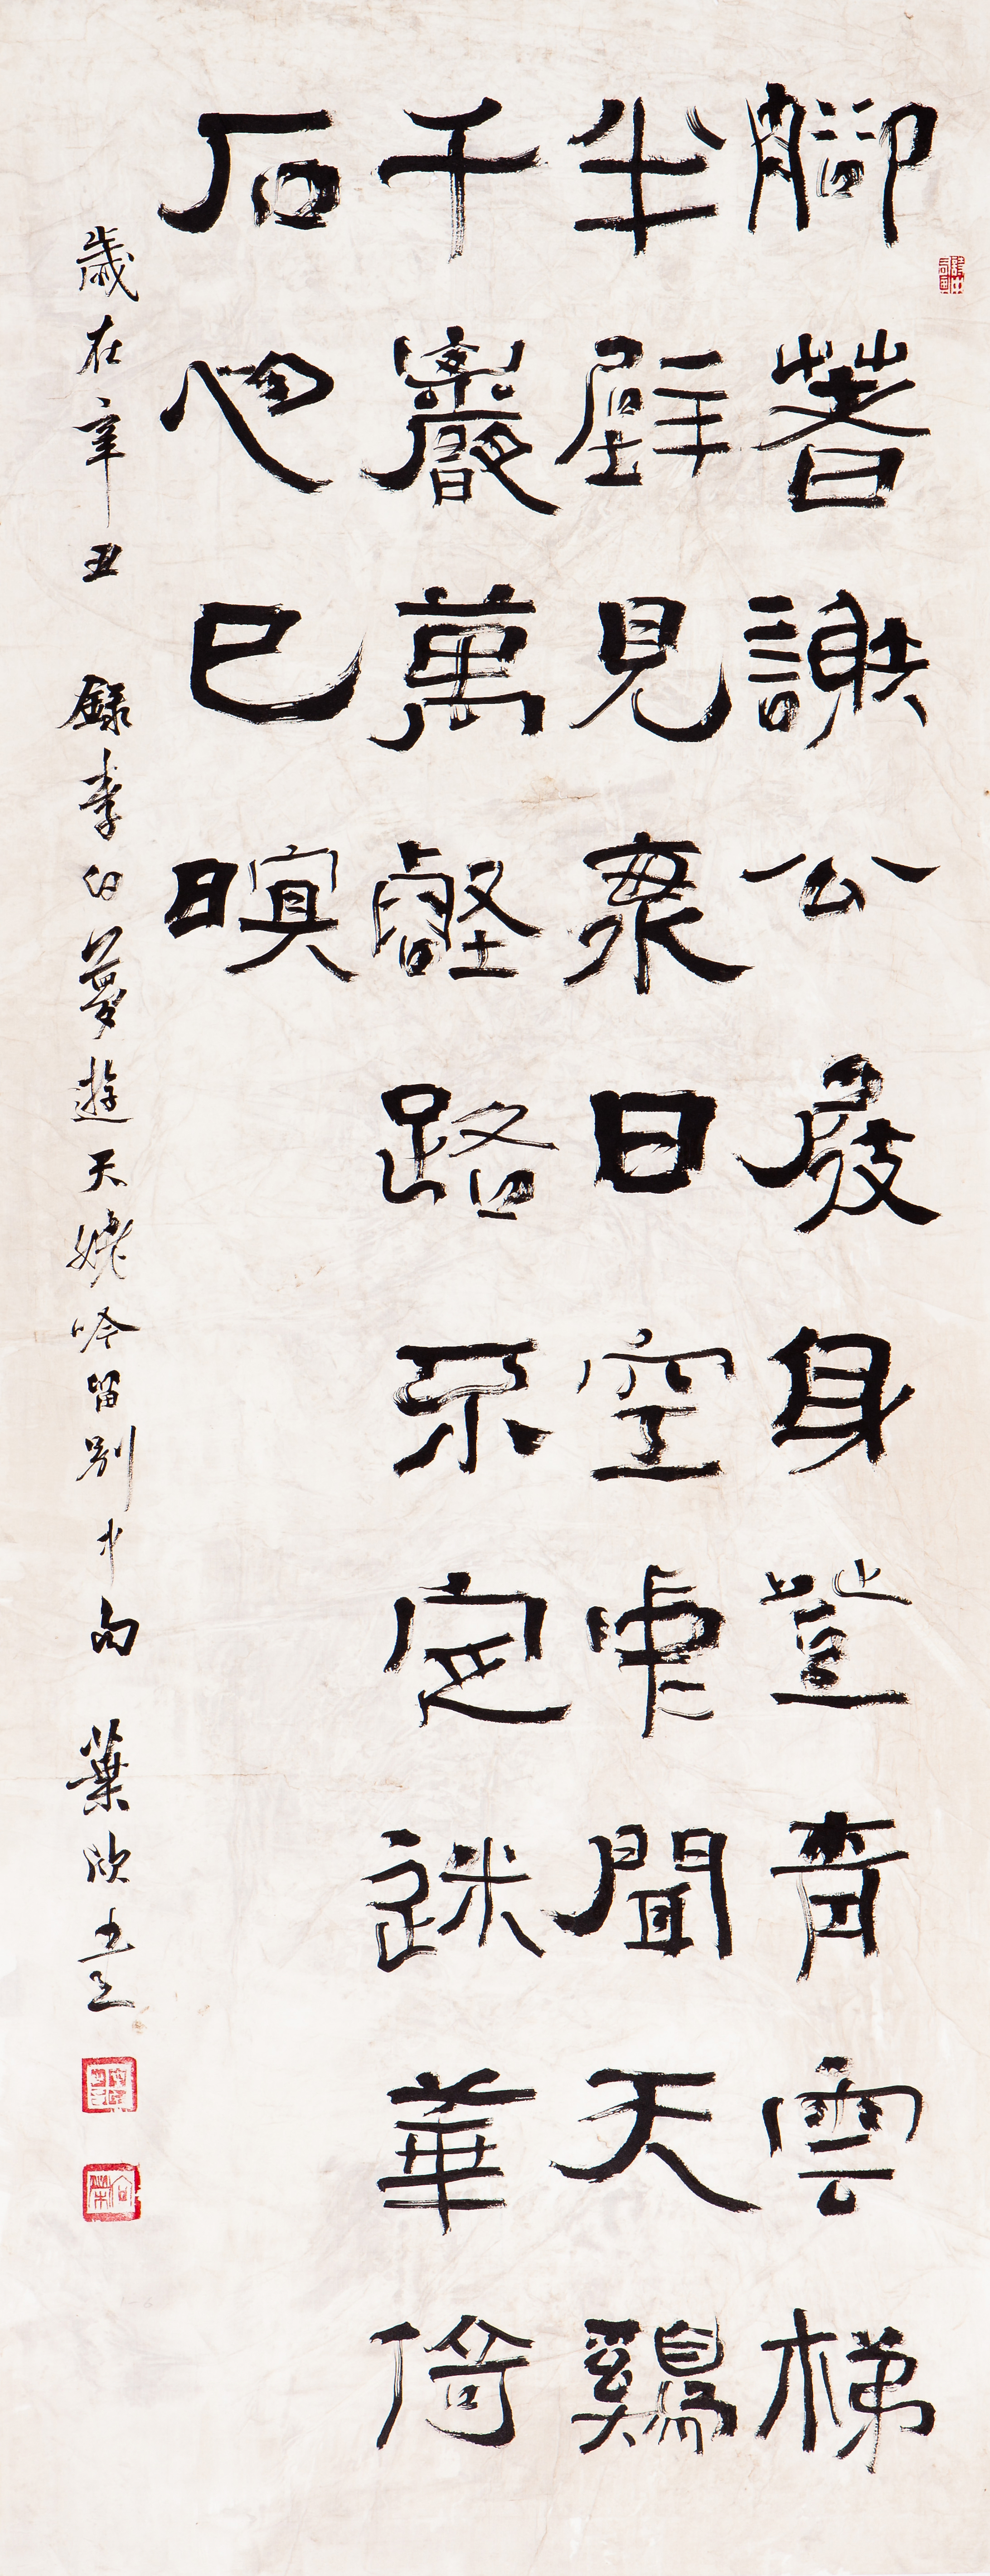 腳著謝公屐身登青雲梯
半壁見海日空中聞天鷄
千巖萬壑路不定迷華倚
石忽已暝
歲在辛丑 錄李白夢遊天姥吟留別中句 葉欣